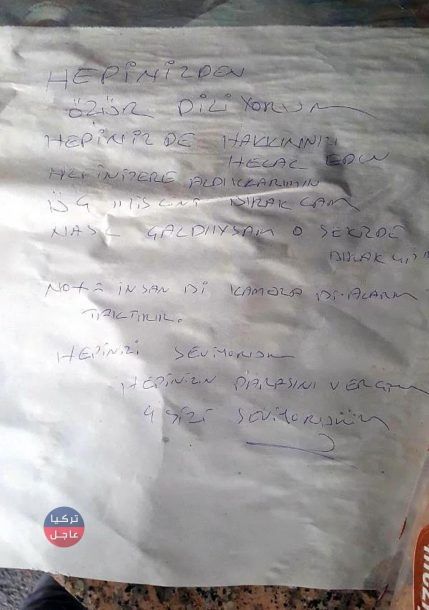 HEPİNİZDEN
ÖZÜR DİLİYORUM
HEPİNİZDE HAKKINNIZI
HELAL EDİN
HEPİNİZERE ALDIKLARIMIN
BIRAKCAM
NASIL ÇALDIIYSAM O ŞEKİLDE
NOT= İNSAN Bİ KAMERA Bİ ALARM
TAKTIRIR.
HEPİNİZİ SEVİYORUM
HEPİNİZİN PARASINI VERCEM
SİZİ SEVİYORUM
تركيا
عاجل